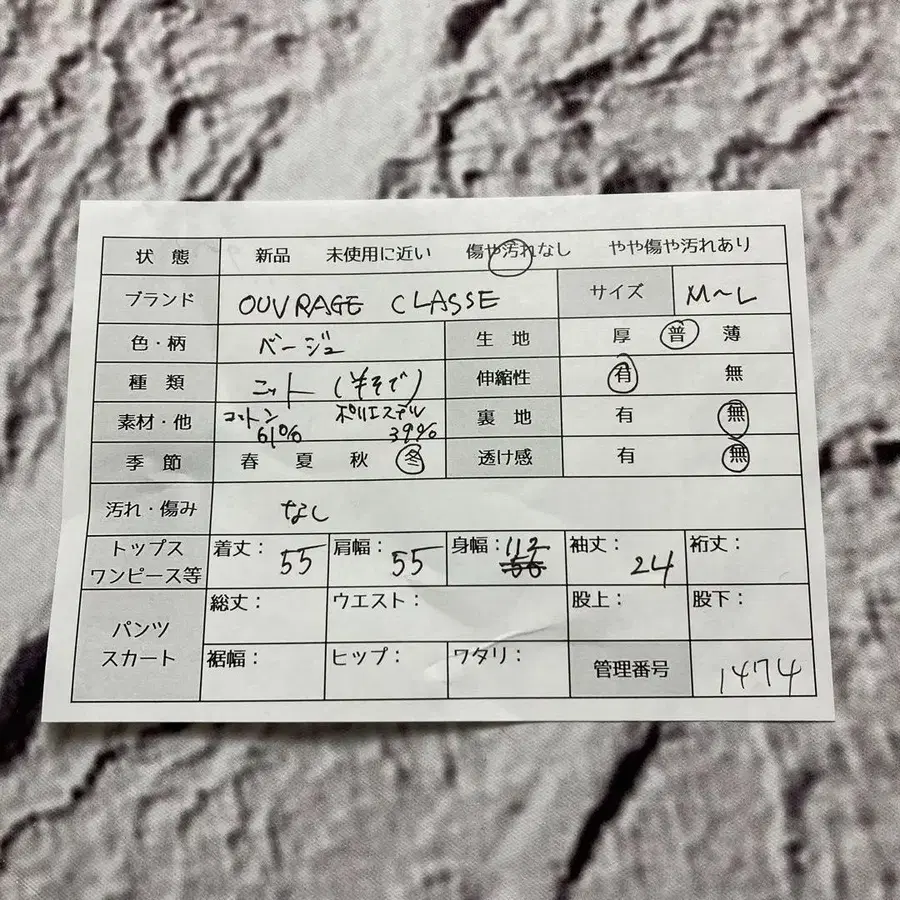 状態 新品 未使用に近い 傷や汚れなし やや傷や汚れあり
ブランド OUVRAGE CLASSE サイズ M～L
色・柄 ベージュ 生地 厚 普 薄
種類 ニット (半そで) 伸縮性 有 無
素材・他 コットン 61% ポリエステル 39% 裏地 有 無
季節 春 夏 秋 冬 透け感 有 無
汚れ・傷み なし
トップス ワンピース等 着丈：55 肩幅：55 身幅：112 袖丈：24 裄丈：
パンツ スカート 総丈： ウエスト： 股上： 股下：
裾幅： ヒップ： ワタリ： 管理番号 1474